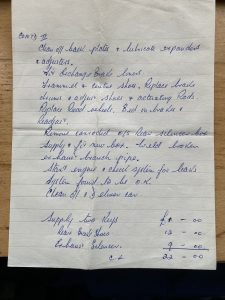 Clean off back plates & lubricate expanders
& adjusters.
Fit Exchange Brake
& shoes. Replace brake
drums & adjust shoes & actuating Rods
Replace Road wheels. Bed in brakes &
Readjust.
Remove corroded O/S Rear silencer box
Supply & fit new box. Weld broken
exhaust branch pipe.
Start engine & check system for leaks
System found to be O.K.
Clean off & deliver car
Supply two Keys
Rear Brake Shoes 13 - 00
Exhaust Silencer. 9 - 00
22 - 00